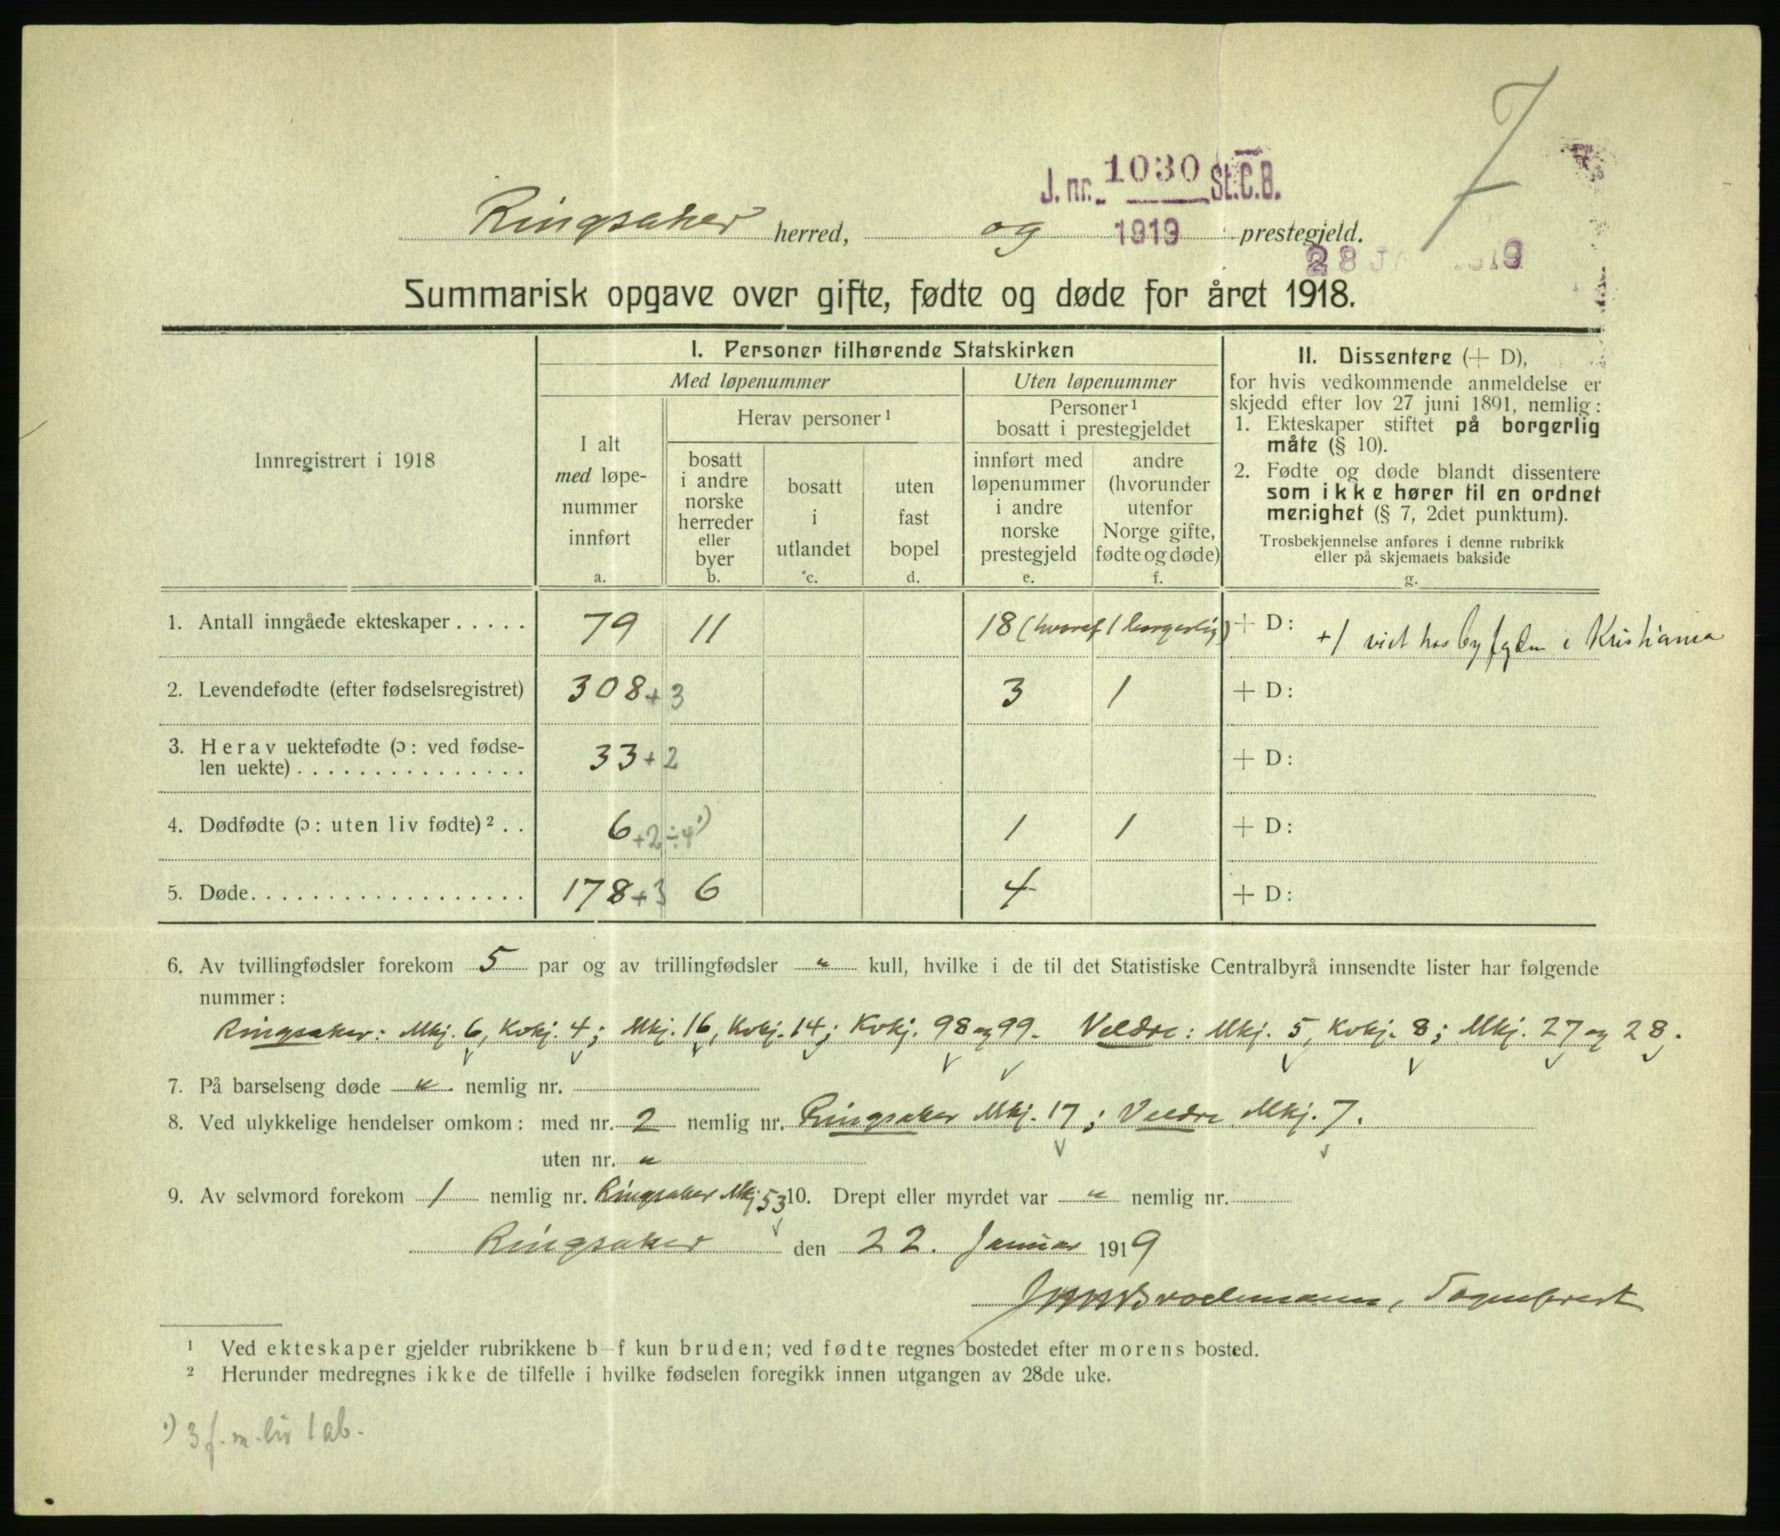 7
J. nr. 1030 St.C.B.
1919
Ringsaker herred, og prestegjeld.
28 JAN 1919
Summarisk opgave over gifte, fødte og døde for året 1918.
Innregistrert i 1918
I. Personer tilhørende Statskirken
Med løpenummer
Uten løpenummer
I alt
med løpe-
nummer
innført
a.
Herav personer¹
bosatt
i andre
norske
herreder
eller
byer
b.
bosatt
i
utlandet
c.
uten
fast
bopel
d.
Personer¹
bosatt i prestegjeldet
innført med
løpenummer
i andre
norske
prestegjeld
e.
andre
(hvorunder
utenfor
Norge gifte,
fødte og døde)
f.
II. Dissentere (+ D),
for hvis vedkommende anmeldelse er
skjedd efter lov 27 juni 1891, nemlig:
1. Ekteskaper stiftet på borgerlig
måte (§ 10).
2. Fødte og døde blandt dissentere
som ikke hører til en ordnet
menighet (§ 7, 2det punktum).
Trosbekjennelse anføres i denne rubrikk
eller på skjemaets bakside
g.
1. Antall inngåede ekteskaper . . . . . 79 11 18 (hvoraf 1 borgerlig) + D: +1 viet hos byfgden i Kristiania
2. Levendefødte (efter fødselsregistret) 308 +3 3 1 + D:
3. Herav uektefødte (ɔ: ved fødse-
len uekte) . . . . . . . . . . . . . . . 33 +2 + D:
4. Dødfødte (ɔ: uten liv fødte)² . . 6 +2 ÷4¹) 1 1 + D:
5. Døde. . . . . . . . . . . . . . . . . . 178 +3 6 4 + D:
6. Av tvillingfødsler forekom 5 par og av trillingfødsler " kull, hvilke i de til det Statistiske Centralbyrå innsendte lister har følgende
nummer:
Ringsaker: Mkj. 6, Kvkj. 4; Mkj. 16, Kvkj. 14; Kvkj. 98 og 99. Veldre: Mkj. 5, Kvkj. 8; Mkj. 27 og 28.
7. På barselseng døde " nemlig nr.
8. Ved ulykkelige hendelser omkom: med nr. 2 nemlig nr. Ringsaker Mkj. 17; Veldre Mkj. 7.
uten nr. "
9. Av selvmord forekom 1 nemlig nr. Ringsaker Mkj 53 10. Drept eller myrdet var " nemlig nr.
Ringsaker den 22. Januar 1919
Brodemann, Sogneprest
¹ Ved ekteskaper gjelder rubrikkene b–f kun bruden; ved fødte regnes bostedet efter morens bosted.
² Herunder medregnes ikke de tilfelle i hvilke fødselen foregikk innen utgangen av 28de uke.
¹) 3 f. m. liv 1 ab.